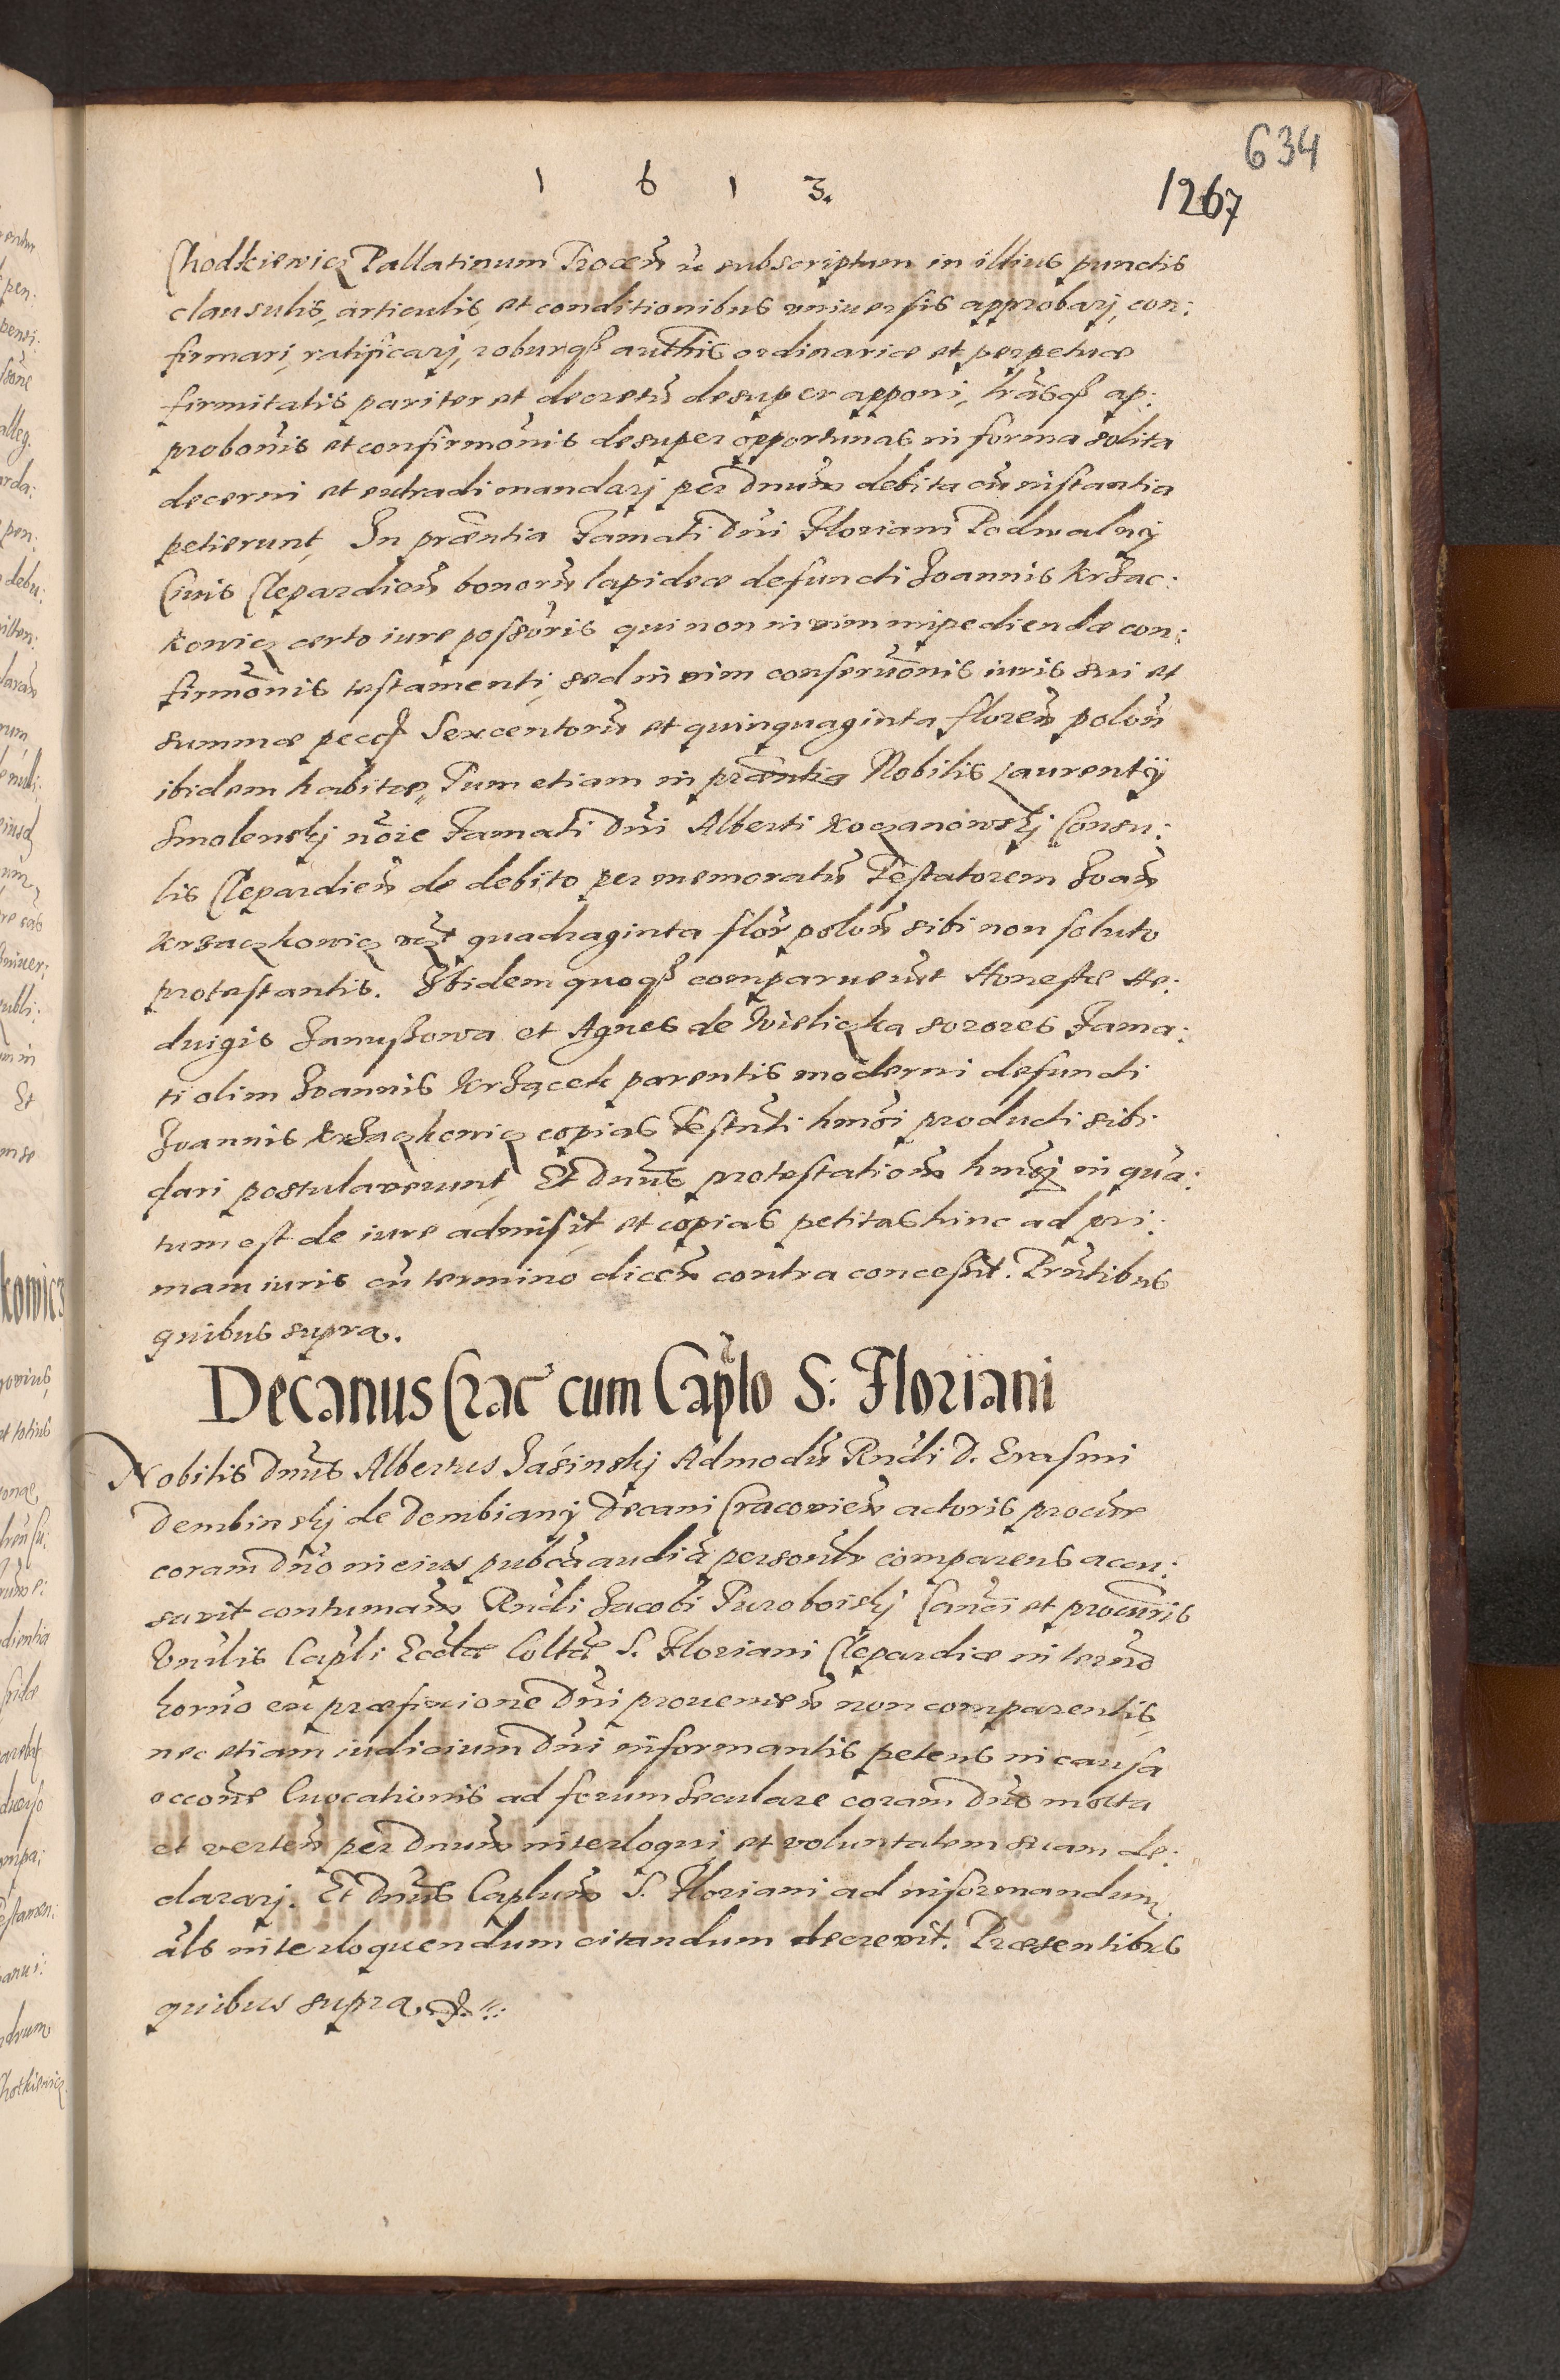 634
1 6 1 3.
1267
Chodkiewicz Pallatinum Trocen̄ &c subscriptum in illius punctis
clausulis, articulis, et conditionibus vniuersis approbarj, con:
firmari, ratificarj, roburq₃ autħis ordinariæ et perpetuæ
firmitatis pariter et decretū desuper apponi, lrāsq₃ ap:
probōnis et confirmōnis desuper opportunas in forma solita
decerni et extradi mandarj per Dnum debita cū instantia
petierunt, In præntia Famati Dni Floriani Podwalny
Ciuis Clepardien̄ bonorū lapideæ defuncti Joannis Krzac:
kowicz certo iure possōris qui non in vim impediendæ con:
firmōnis testamenti, sed in vim conseruōnis iuris sui et
summæ pecc₃ Sexcentorū et quinquaginta floren̄ polon̄
ibidem habitæ, Tum etiam in præntia Nobilis Laurentij
Smolenskj noīe Famati Dni Alberti Koczanowskj Consu:
lis Clepardien̄ de debito per memoratū Testatorem Joan̄
Krzaczkowicz vꝫt quadraginta flor̄ polon̄ sibi non soluto
protestantis. Ibidem quoq₃ comparuerūt Honestæ He:
duigis Janussowa et Agnes de Wieliczka sorores Fama:
ti olim Joannis Krzącek parentis moderni defuncti
Joannis Krzaczkowicz copias Testnti hmōi producti sibi
dari postulaverunt, Et Dnus protestationē hmōi in qua:
tum est de iure admisit, et copias petitas hinc ad pri:
mam iuris cū termino dicen̄ contra concessit. Prntibus
quibus supra.
Decanus Crac̄ cum Caplo S: Floriani
Nobilis Dnus Albertus Jasinskj Admodū Rndi D. Erasmi
Dembinskj de Dembiany Decani Cracovien̄ actoris procūre
coram Dno in eius pubca audiā personlr comparens accu:
savit contumam̄ Rndi Jacobi Puroboiskj Canci et procūris
Vnilis Capli Eccla Collta S. Floriani Clepardiæ in termō
horno ex præfixione Dni prouenien̄ non comparentis,
nec etiam iudicium Dni informantis petens in causa
occone Euocationis ad forum seculare coram Dno mota
et verten̄ per Dnum interloqui, et voluntatem suam de:
clararj. Et Dnus Caplum S. Floriani ad informandum
als interloquendum citandum decrevit. Præsentibus
quibus supra.